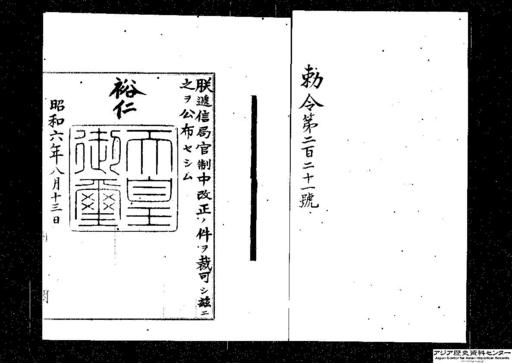 勅令第二百二十一號
朕遞信局官制中改正ノ件ヲ裁可シ茲ニ
之ヲ公布セシム
裕仁
天皇御璽
昭和六年八月十三日
アジア歴史資料センター
Japan Center for Asian Historical Records